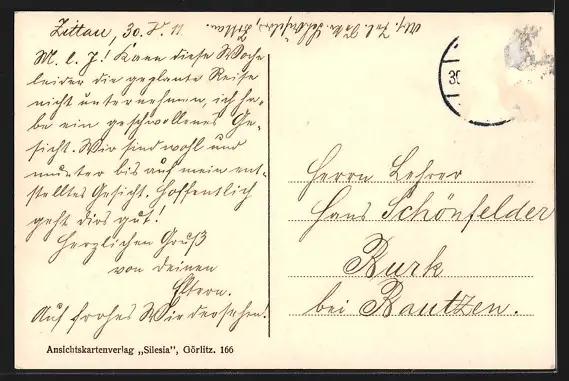 Zittau, 30. V. 11
M. l. J.! Kann diese Woche
leider die geplante Reise
nicht unternehmen, ich ha-
be ein geschwollenes Ge-
sicht. Wir sind wohl und
munter bis auf mein ent-
stelltes Gesicht. Hoffentlich
geht dirs gut!
Herzlichen Gruß
von deinen
Eltern.
Auf frohes Wiedersehen!
Ansichtskartenverlag „Silesia", Görlitz. 166
Zittau.
30
Herrn Lehrer
Hans Schönfelder
Burk
bei Bautzen.